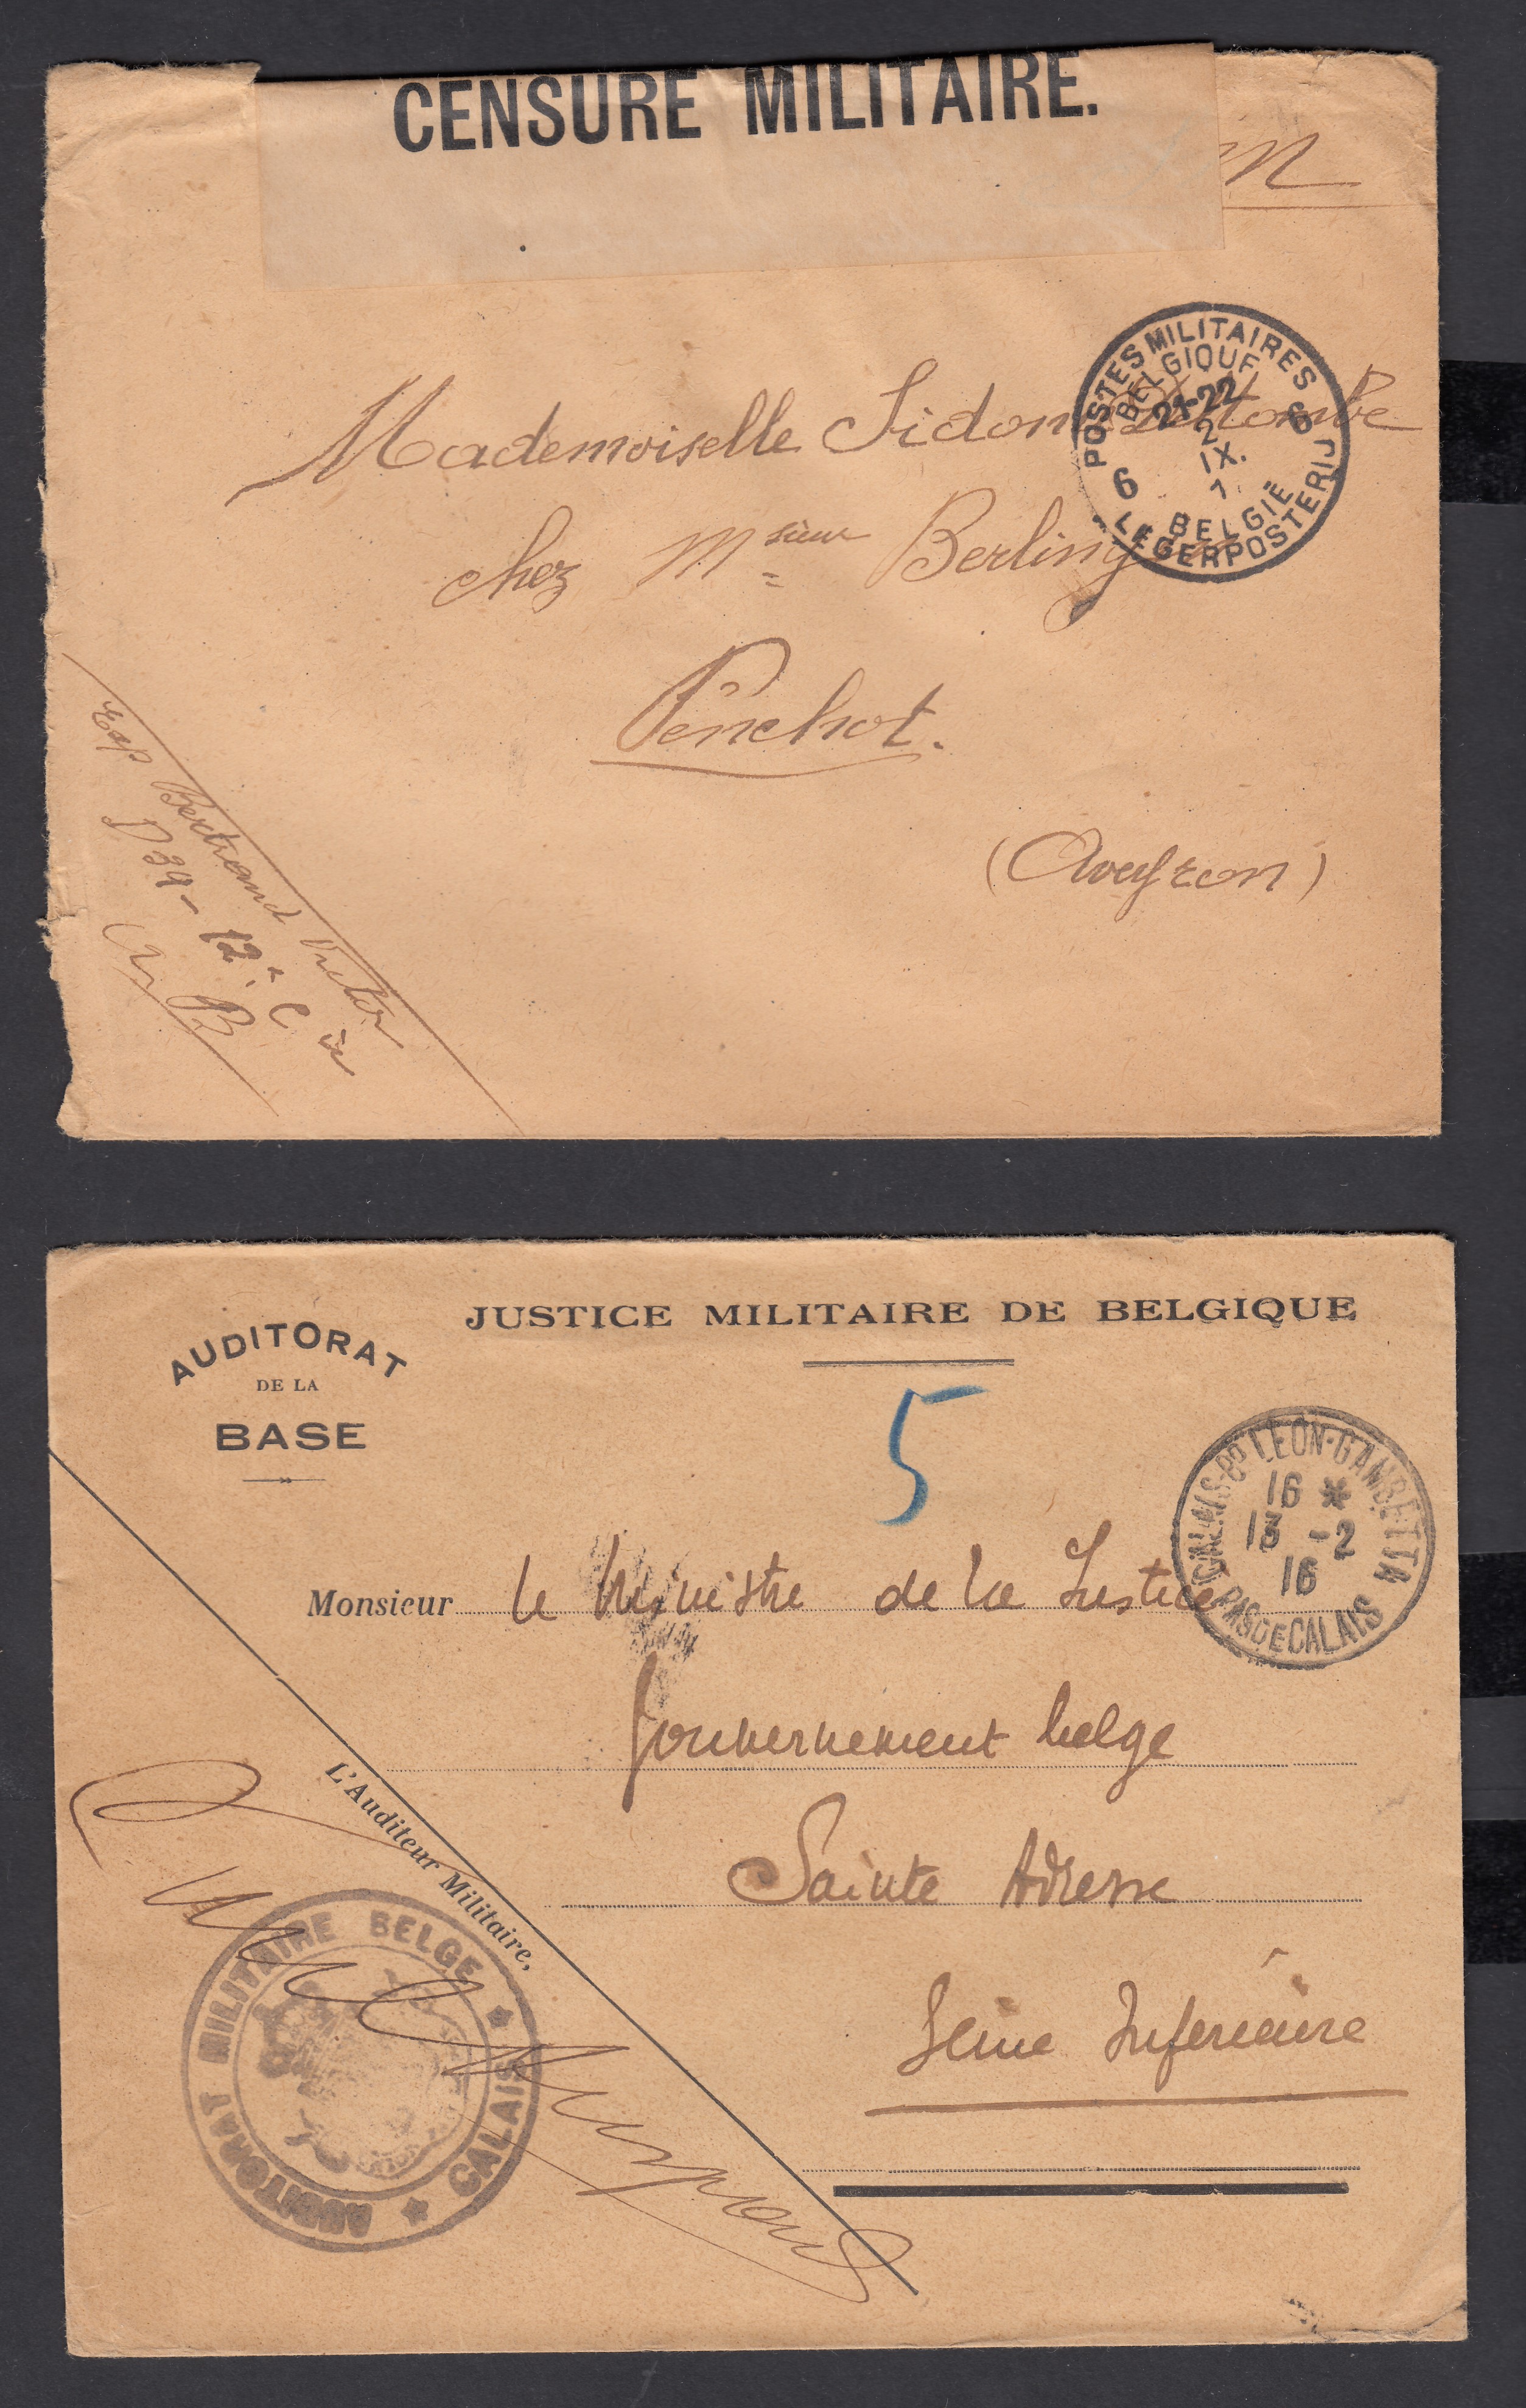 CENSURE MILITAIRE.
m
POSTES MILITAIRES
BELGIQUE
21-22
2
IX.
1
6 6
BELGIË
LEGERPOSTERIJ
Mademoiselle Sidonie
chez Msieur Berling
Penchot.
(Aveyron)
Exp Bertrand Victor
D 39 - 12e Cie
A. B
JUSTICE MILITAIRE DE BELGIQUE
AUDITORAT
DE LA
BASE
5
CALAIS-BD LEON-GAMBETTA
16 *
13 -2
16
PAS DE CALAIS
Monsieur le Ministre de la Justice
Gouvernement belge
Sainte Adresse
Seine Inferieure
L'Auditeur Militaire,
AUDITORAT MILITAIRE BELGE ★ CALAIS ★